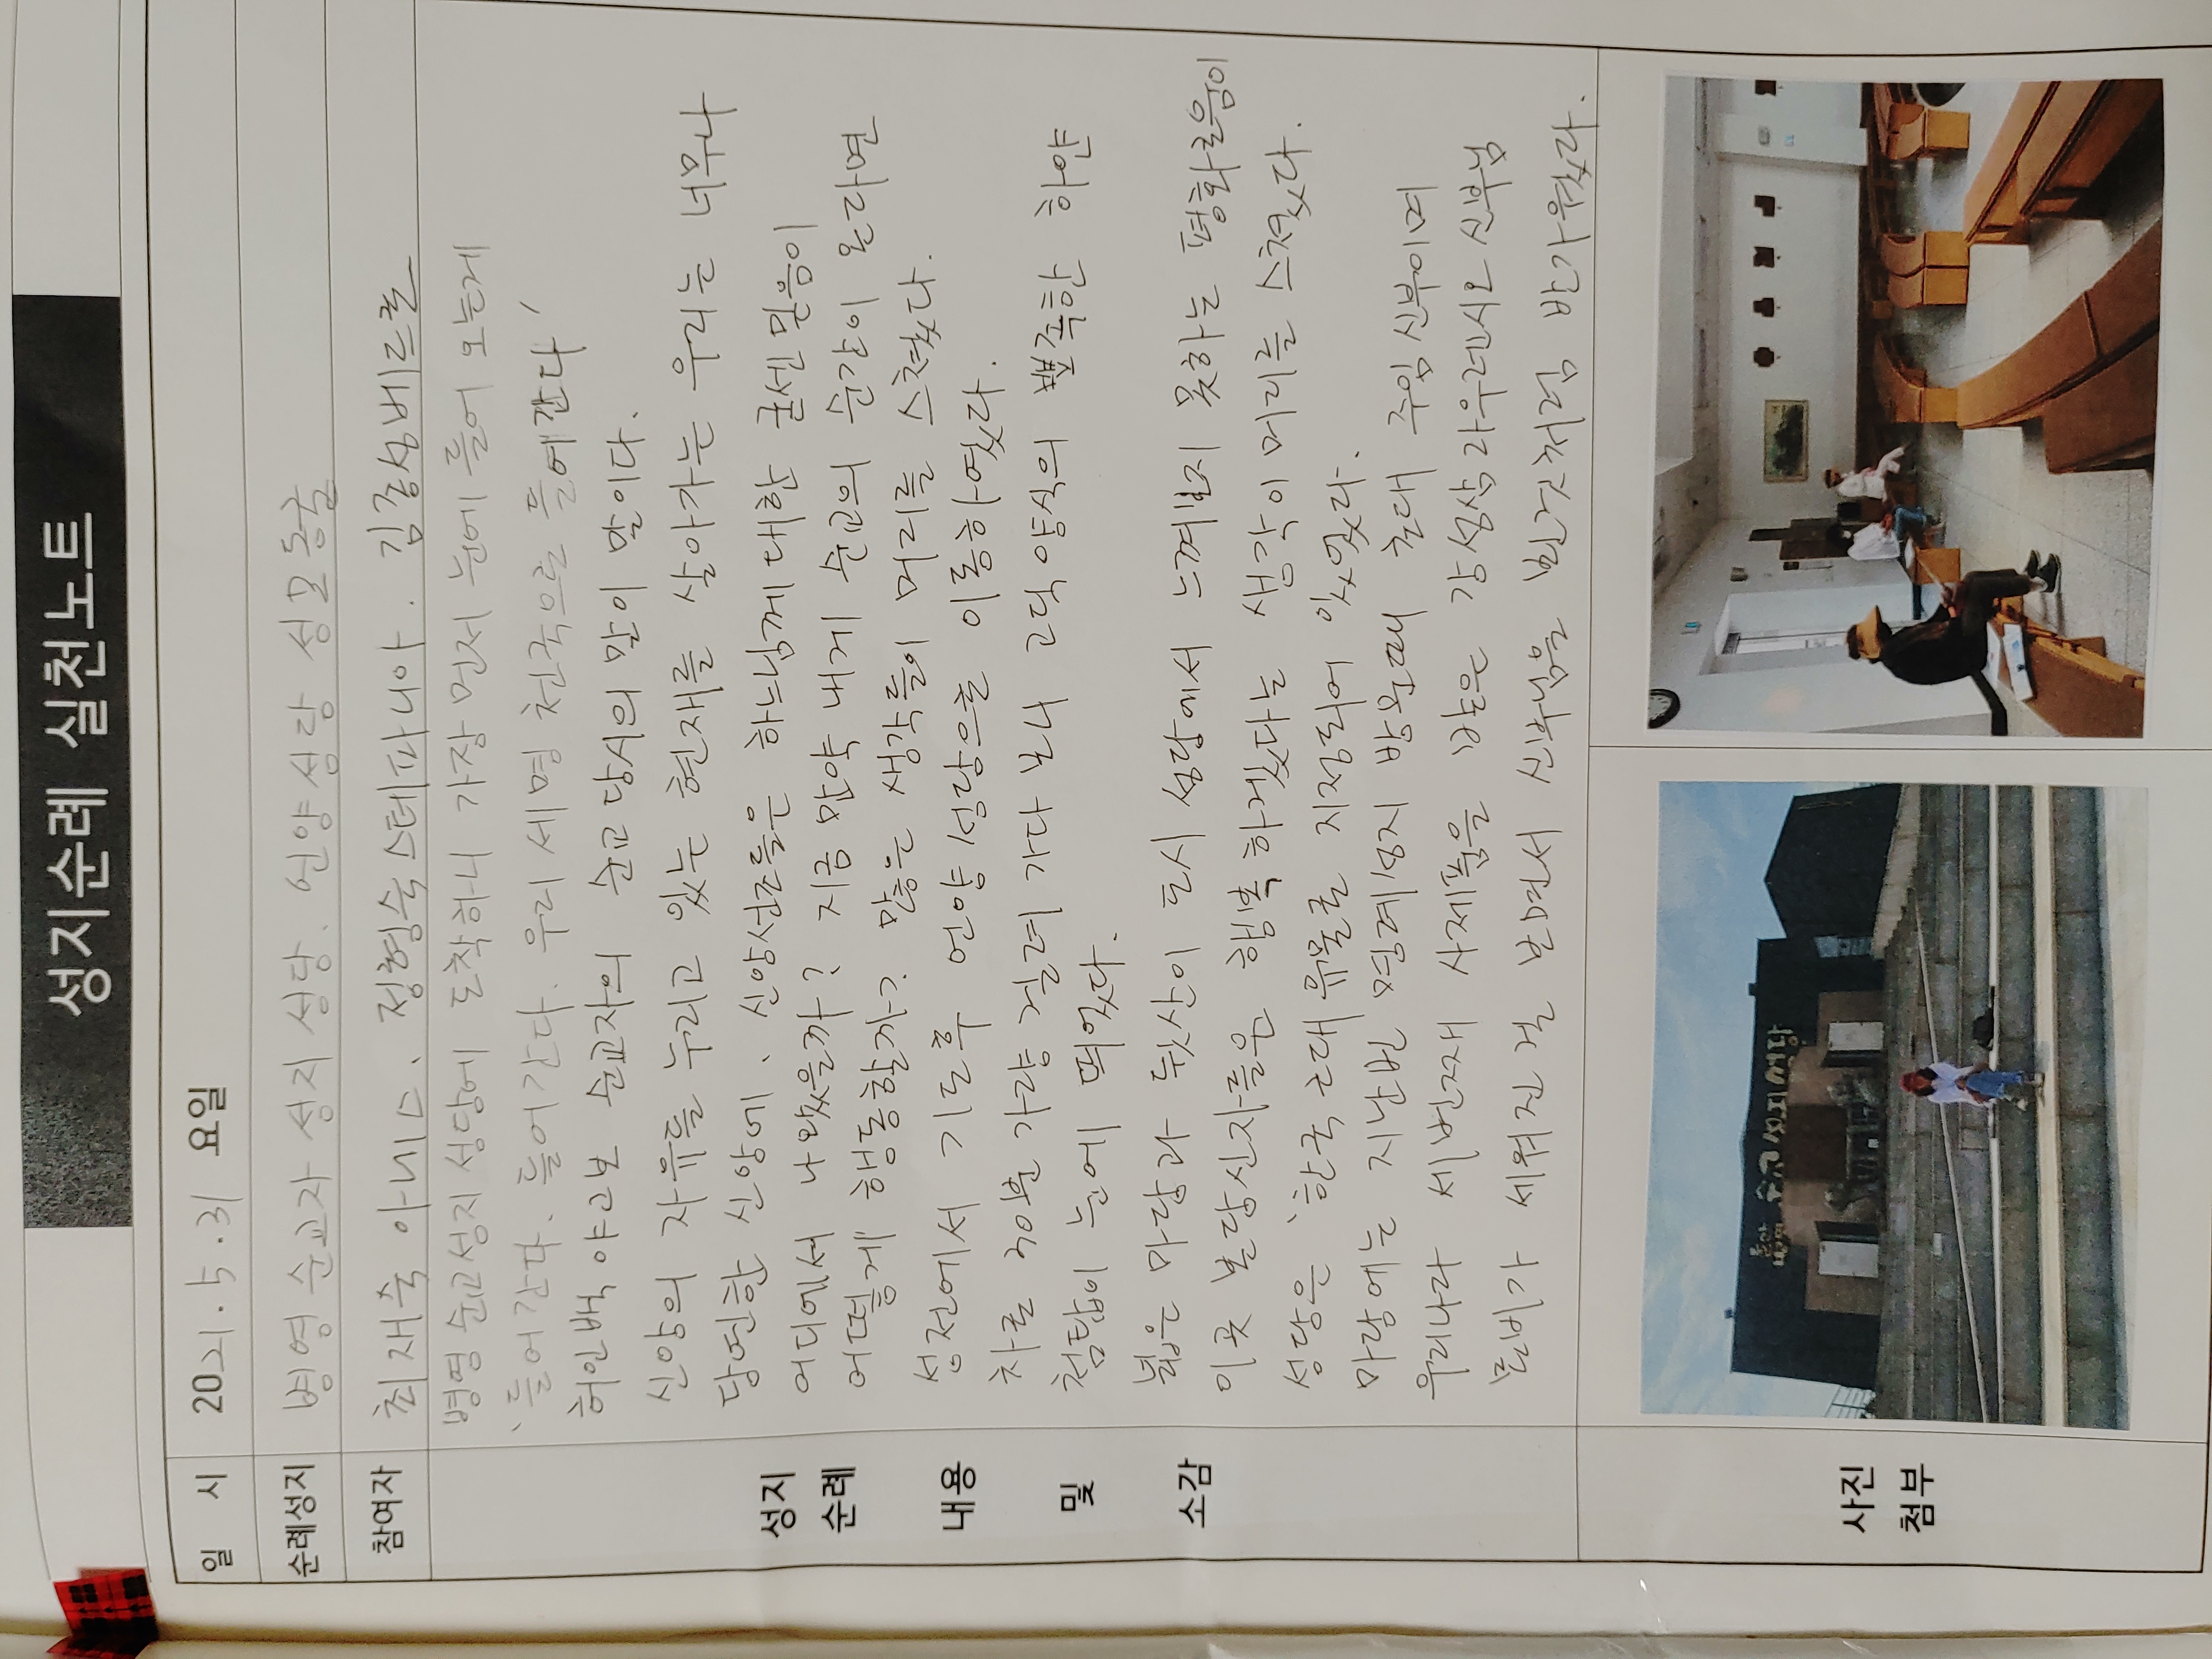 성지순례 실천노트
일 시 2021. 5. 31 요일
순례성지 병영 순교자 성지 성당. 언양성당 성모동굴
참여자 최재숙 아네스. 정형숙스테파니아. 김종성베드로
병영 순교성지 성당에 도착하니 가장 먼저 눈에 들어 오는게
'들어간다. 들어간다. 우리 세명 천국으로 들어간다'
허인백 야고보 순교자의 순교 당시의 말이 말이다.
신앙의 자유를 누리고 있는 현재를 살아가는 우리는 너무나
당연한 신앙에. 신앙선조들은 하느님께 대한 굳센 믿음이
어디에서 나왔을까? 지금 만약 내게 순교의 순간이 온다면
어떻게 행동할까? 많은 생각들이 머리를 스쳤다.
성전에서 기도후 언양성당으로 이동하였다.
차로 30분 가량 걸려 가다 보니 고딕양식의 뾰족한 하얀
첨탑이 눈에 띄었다.
넓은 마당과 뒷산이 도시 성당에서 느껴보지 못하는 평화로움이
이곳 본당신자들은 행복하겠다는 생각이 머리를 스쳤다.
성당은 '한국 근대유물로 지정되어 있었다.
마당에는 지난번 명례성지 방문때 초대 주임 신부이며
우리나라 세번째 사제품을 받은 강성삼라우렌시오 신부님
묘비가 세워진 걸 보면서 신부님을 뵌것처럼 반가웠다.
성지
순례
내용
및
소감
사진
첨부
울산
병영 순교성지성당